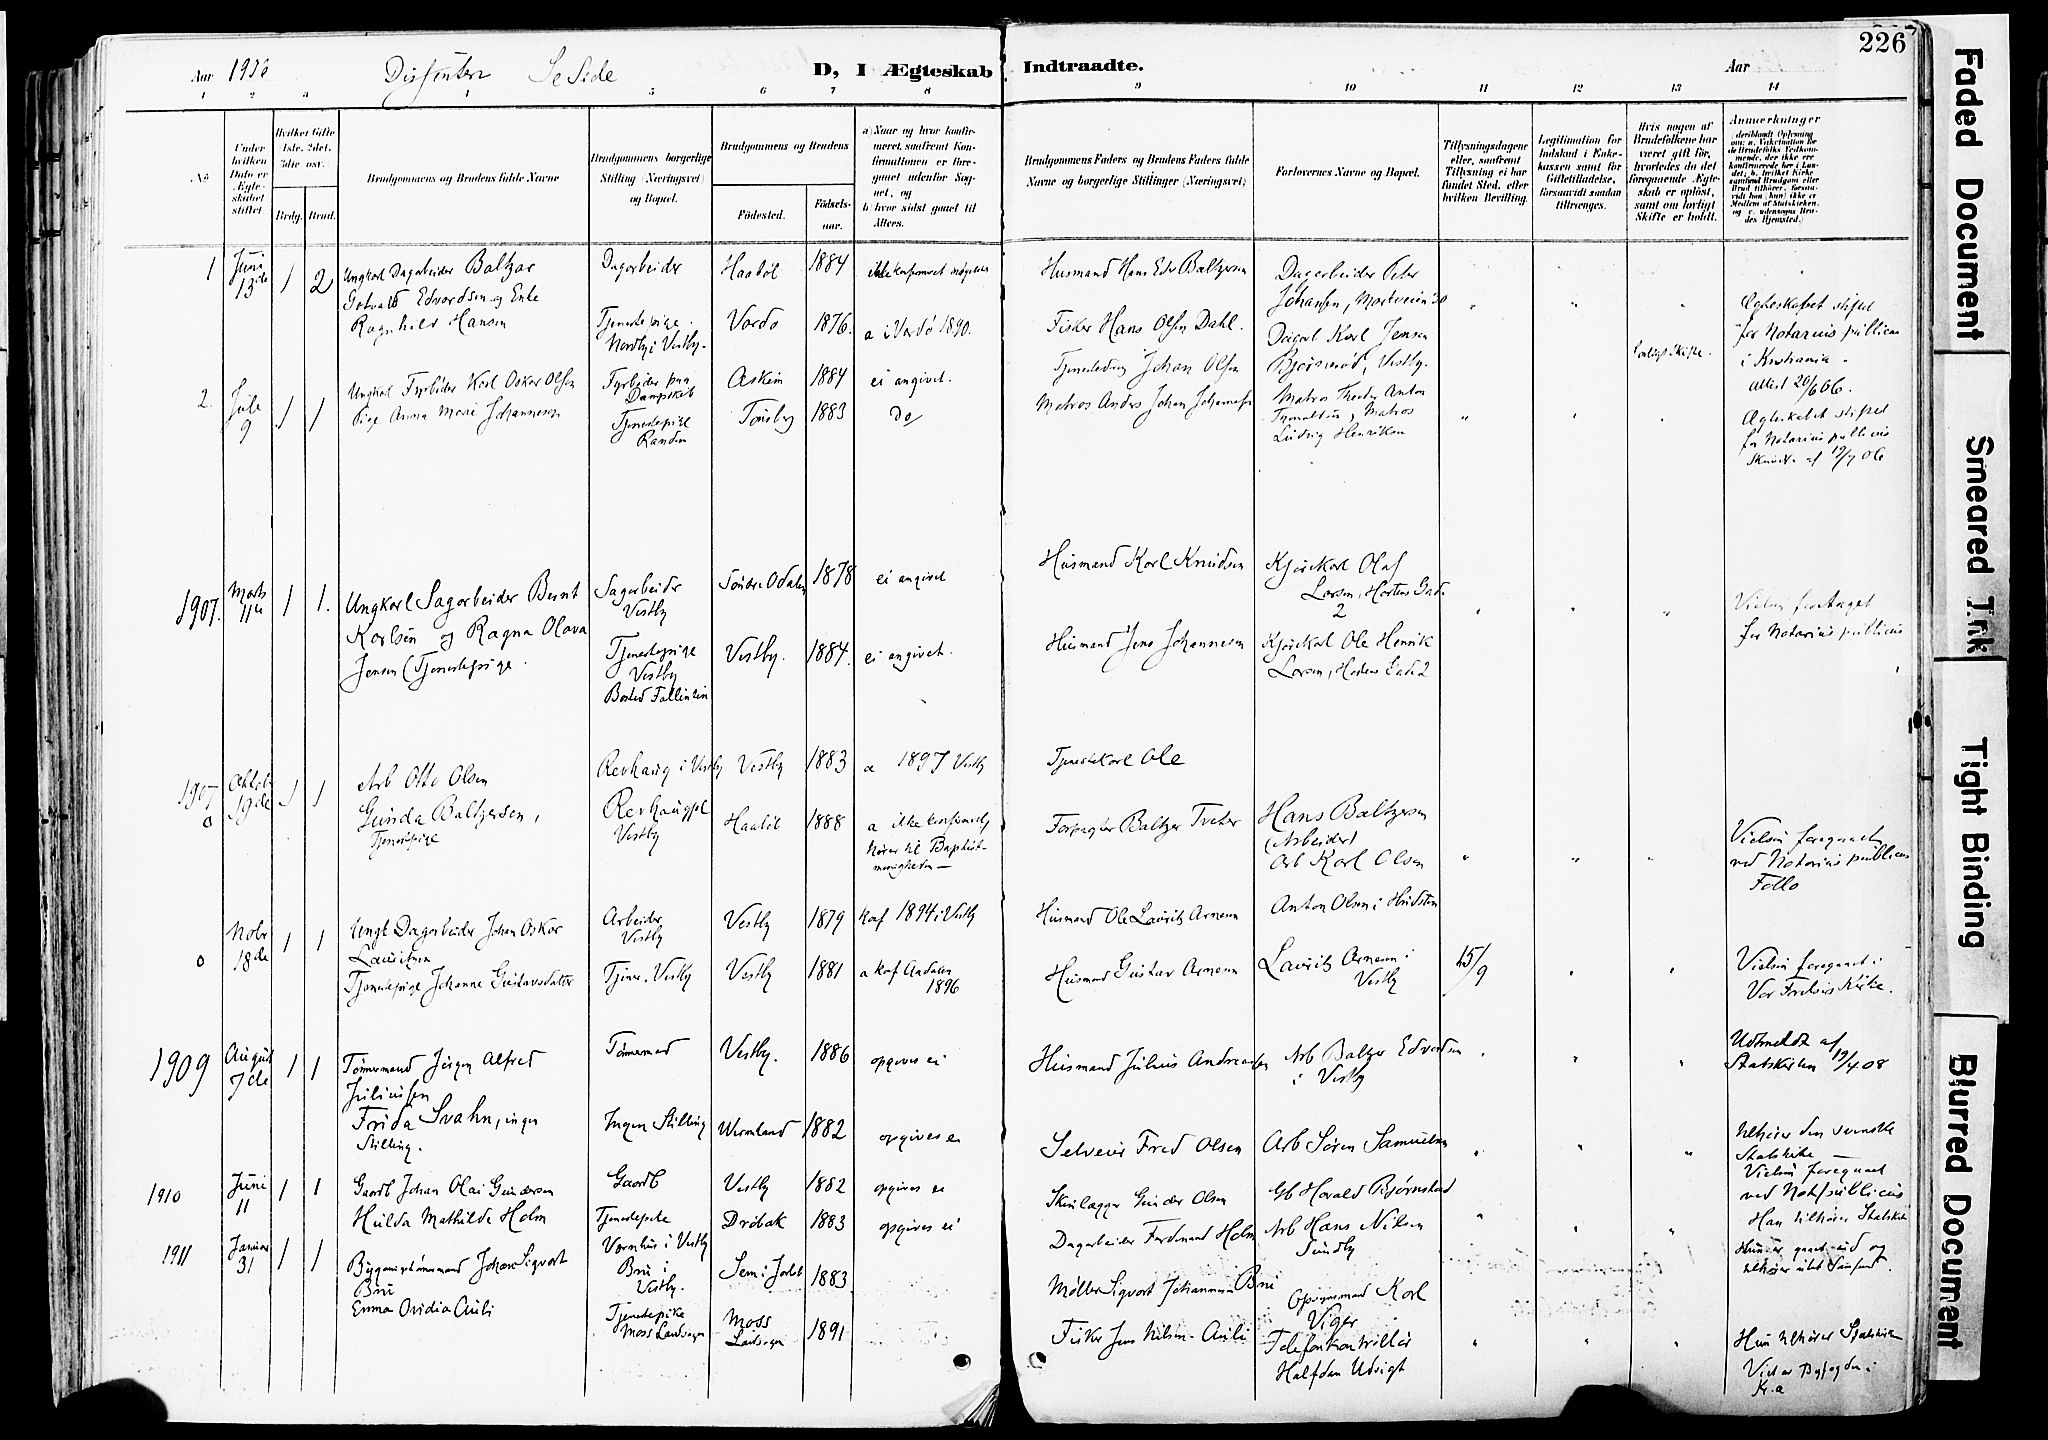 226
Aar 1906 Dissenter Se Side D, I Ægteskab Indtraadte. Aar
1 2 3 4 5 6 7 8 9 10 11 12 13 14
No
Under hvilken Dato er Ægteskabet stiftet
Hvilket Gifte 1ste, 2det, 3die osv.
Brdg. Brud.
Brudgommens og Brudens fulde Navne
Brudgommens borgerlige Stilling (Næringsvei) og Bopæl.
Brudgommens og Brudens
Fødested. Fødselsaar.
a) Naar og hvor konfirmeret, saafremt Konfirmationen er foregaaet udenfor Sognet, og
b) hvor sidst gaaet til Alters.
Brudgommens Faders og Brudens Faders fulde Navne og borgerlige Stillinger (Næringsvei)
Forlovernes Navne og Bopæl.
Tillysningsdagene eller, saafremt Tillysning ei har fundet Sted, efter hvilken Bevilling.
Legitimation for Indskud i Enkekassen samt for Giftetilladelse, forsaavidt saadan tiltrænges.
Hvis nogen af Brudefolkene har været gift før, hvorledes da det foregaaende Ægteskab er opløst, samt om lovligt Skifte er holdt.
Anmerkninger
1 Juni 13de 1 2
Ungkarl Dagarbeider Baltzar
Gotvald Edvardsen og Enke
Ragnhild Hansen
Dagarbeider
Tjenestepige
Nordby i Vestby.
Haabøl 1884
Vardø 1876.
a i Vardö 1890.
Husmand Hans Edv Baltzersen
Fisker Hans Olsen Dahl.
Dagarbeider Peter
Johansen,
Dagarb Karl Jensen
Vestby.
lovligt Skifte.
Ægteskabet stiftet
for Notarius publicus
i Kristiania.
attest 20/6 06.
2. Jule 9 1 1
Ungkarl Fyrbøder Karl Oskar Olsen
Pige Anna Marie Johannesen
Fyrbøder paa
Dampskib
Tjenestepige
Randem
Askim 1884
Tønsberg 1883
ei angivet.
Do
Tjenestedreng Johan Olsen
Matros Anders Johan Johannesen
Matros Theodor Anton
Matros
Ludvig Henriksen
Ægteskabet stiftet
for Notarius publicus
af 19/7 06
1907. Marts 11te 1 1.
Ungkarl Sagarbeider Bernt
Karlsen og Ragna Olava
Jensen (Tjenestepige.
Sagarbeider
Vestby
Tjenestepige
Vestby
Søndre Odalen 1878
Vestby. 1884.
ei angivet
ei angivet.
Husmand Karl Knudsen
Husmand Jens Johannesen
Kjørekarl Olaf
Larsen, Hortens Gade
2
Kjørekarl Ole Henrik
Larsen, Hortens Gade 2
Vielsen foretaget
for Notarius publicus
1907 Oktober 19de 1 1
Arb Otto Olsen
Gunda Baltzersen,
Tjenestepige
Revhaug i Vestby
Revhaugpl
Vestby
Vestby 1883
Haabøl 1888
a 1897 Vestby
a ikke konfirmeret,
hører til Baptist-
menigheden —
Tjenestekarl Ole
Forpagter Baltzer Tveter
Hans Baltzersen
(Arbeider)
Arb Karl Olsen
Vielsen foregaaet
ved Notarius publicus
Follo
Nobr 18de 1 1
Ungk Dagarbeider Johan Oskar
Lauritzen
Tjenestepige Johanne Gustavsdatter
Arbeider
Vestby
Tjener. Vestby
Vestby 1879
Vestby 1881
Konf 1894 i Vestby
a Konf
1896
Husmand Ole Lauritz Arnesen
Husmand Gustav Arnesen
Anton Olsen i
Lauritz Arnesen i
Vestby
15/9
Vielsen foregaaet i
Vor Frelsers Kirke.
1909 August 7de 1 1
Tømmermand Jörgen Alfred
Juliussen
Frida Svahn, ingen
Stilling.
Tømmermand
Ingen Stilling
Vestby. 1886
Wermland 1882
opgives ei
opgives ei
Husmand Julius Andreassen
Selveier Fred Olsen
Arb Baltzer Edvardsen
i Vestby
Arb Søren Samuelsen
Udmeldt af
Statskirken 19/4 08
tilhører den svenske
Statskirke —
1910 Juni 11 1 1
Gaardb Johan Olai Gundersen
Hulda Mathilde Holm
Gaardb
Tjenestepike
i Vestby
Vestby 1882
Drøbak 1883
opgives ei
opgives ei
Gunder Olsen
Dagarbeider Ferdinand Holm
Gb Harald Bjørnstad
Arb Hans Nilsen
Sundby
Vielsen foregaaet
ved Not publicus
Han tilhører Statskirken
Hun er
1911 Januar 31 1 1
Bygningstømmermand Johan Sigvart
Bru
Emma Ovidia Auli
Bru i
Vestby.
Tjenestepike
Moss Landsogn
Sem i Jarlsb 1883
Moss
Landsogn 1891
Møller Sigvart Johannesen Bru
Fisker Jens Nilsen Auli
Opsynsmand Karl
Viger
Telefonkontrollør
Halfdan Udsigt
Hun tilhører Statskirken
Viet av Byfogden i
Kr.a
Faded Document
Smeared Ink
Tight Binding
Blurred Document